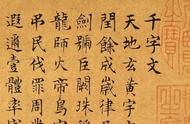 千字文
天地玄黃宇
閏餘成歲律
劍號巨闕珠
龍師火帝鳥
弔民伐罪周
遐邇壹體率